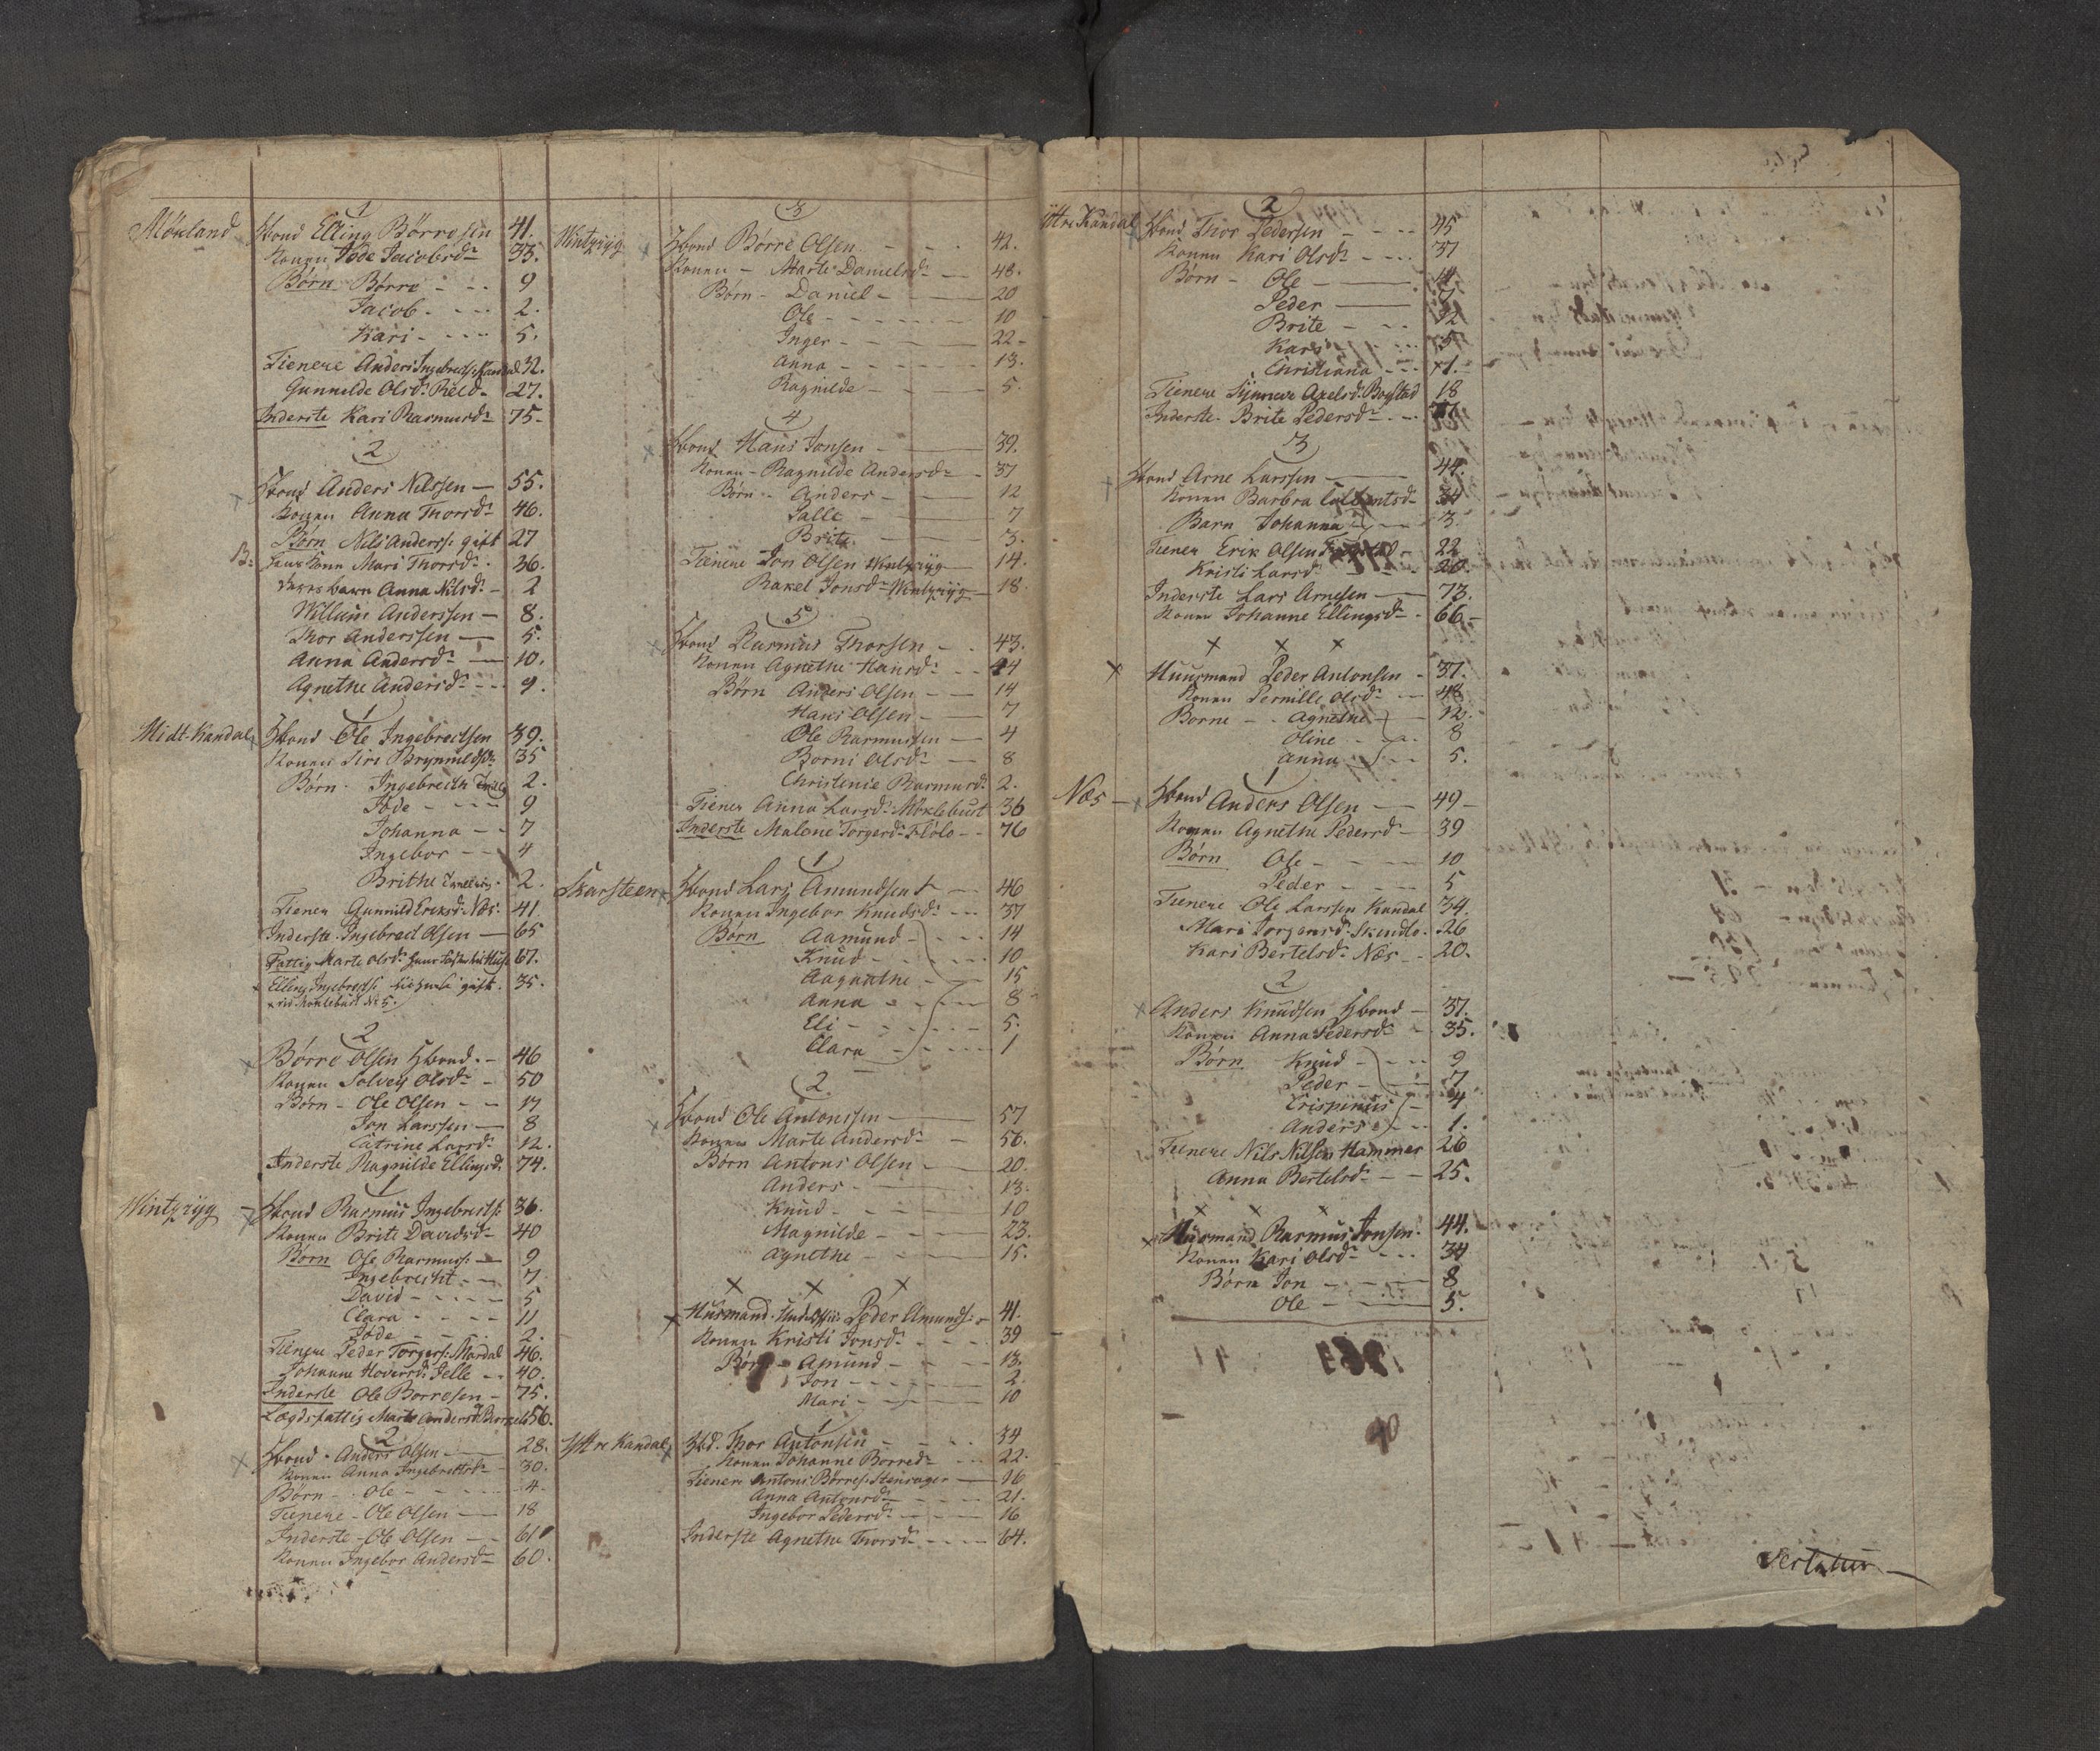 Möuland
1
Hbond Elling Börresen 41.
Konen Jöde Jacobsdr 33.
Börn Börre - - - 9
Jacob - - - 2.
Kari - - - 5.
Tienere Anders Ingebrectss: Kandal 32.
Gunnilde Olsdr Reed - 27.
Inderste Kari Rasmusdr 75-
2
Hbond Anders Nilssen - 55.
Konen Anna Thorsdr 46.
Börn Nils Anderss: gift 27
B: hans Kone Mari Thorsdr 36.
deres barn Anna Nilsdr - 2
Willum Anderssen - 8.
Thor Anderssen - 5.
Anna Andersdr - 10.
Agnethe Andersdr - - 9.
Midt-Kandal
1
Hbond Ole Ingebrectsen 39.
Konen Siri Brynnildsdr 35
Börn - Ingebrecth 2.
Jöde - - - 9
Johanna - - 7
Ingebor - - 4
Brithe 2.
Tiener Gunnild Eriksdr Næs: 41
Inderste Ingebrect Olsen - 65
Fattig Marte Olsdr 67.
Elling Ingebrects: gift. 35.
2
Börre Olsen Hbond. - 46
Konen Solvey Olsdr - 50
Börn - Ole Olsen - - 17
Jon Larssen - 8
Catrine Larsdr 12.
Inderste Ragnilde Ellingsdr 74.
Wintzriyg
1
Hbond Rasmus Ingebrects: 36.
Konen Brite Davidsdr 40
Born Ole Rasmuss: - 9
Ingebrecht - - 7
David - - - - 5
Clara - - - 11
Jöde - - - 2.
Tienere Peder Torgers: Mardal 46.
Johanne Hoversdr Jelle - - 40.
Inderste Ole Börresen - 75.
Lægdsfattig Marte Andersdr 56.
2
Hbond - Anders Olsen - 28.
Konen Anna Ingebrectsdr - 30.
Börn - Ole - - - 4-
Tienere - Ole Olsen - 18
Inderste - Ole Olsen - 61
Konen Ingebor Andersdr 60.
Wintzriyg
3
Hbond Börre Olsen - - - 42.
Konen - Marte Danielsdr - 48.
Börn - Daniel - - 20
Ole - - - - 10
Inger - - - 22-
Anna - - - - 13.
Ragnilde - - - 5.
4
Hbond Hans Jonsen - - 39.
Konen - Ragnilde Andersdr - 37
Börn - Anders - - 12
Palle - - 7
Brite - - 3.
Tienere Jon Olsen Wintzriyg - 14.
Rakel Jonsdr Wintzriyg - 18.
5
Hbond Rasmus Thorsen - - 43.
Konen Agnethe Hansdr - - 44
Börn Anders Olsen - - 14
Hans Olsen - - 7
Ole Rasmussen - - 4
Borni Olsdr - 8
Christenie Rasmusdr 2.
Tiener Anna Larsdr Möklebust 36
Inderste Malene Torgersdr Flölo - - 76
Skarsteen
1
Hbond Lars Amundsen - 46
Konen Ingebor Knudsdr - - 37
Börn Aamund - - - 14
Knud - - - 10
Aagnathe - - 15
Anna - - - 8
Eli - - - - 5.
Clara - - - 1
2
Hbond Ole Antonssen - 57
Konen Marte Andersdr - 56.
Börn Antons Olsen - 20.
Anders - - 13.
Knud - - - 10
Magnilde - - 23.
Agnethe - - 15.
× × ×
Husmand Peder Amunds: - 41.
Konen Kristi Jonsdr - - - 39
Börn - Amund - - - 13.
Jon - - - - 2.
Mari - - - 10
Yttre Kandal
1
Hbd. Thor Antonsen - - - 34
Konen Johanne Borresdr - - 22.
Tienere Antoni Börres: Stensager - 16
Anna Antonsdr - - - 21.
Ingebor Pedersdr - - - 16
Inderste Agnethe Thorsdr - - - 64.
Yttre Kandal
2
Hbond Thor Pedersen - - - 45
Konen Kari Olsdr - - - 37
Börn - Ole - 14
Peder - 7
Brite - - - 12
Kari - - - 5
Christiana - - - 1.
Tienere Synneve Axelsdr Bogstad 18
Inderste Brite Pedersdr - -
3
Hbond Arne Larssen - 44.
Konen Barbra 34
Barn Johanna - - 3.
Tiener Erik Olsen 22
Kristi Larsdr 20.
Inderste Lars Arnesen - 73.
Konen Johanne Ellingsdr - 66-
× × ×
Huusmand Peder Antonsen - 37.
Konen Pernille Olsdr - - 48
Borne - - Agnethe - 12.
Oline - - 8
Anna - - 5.
Næs
1
Hbond Anders Olsen - - 49-
Konen Agnethe Pedersdr - 39
Börn Ole - - - 10
Peder - - - 5
Tienere Ole Larssen Kandal 34.
Mari Jorgensdr 26
Kari Bertelsdr Næs - - 20.
2
Anders Knudsen Hbond - 37.
Konen Anna Pedersdr - 35.
Börn Knud - - - 9
Peder - - - 7
Crispinus - 4
Anders - - 1.
Tienere Nils Nilsen Hammer 26
Anna Bertelsdr - - 25.
× × ×
Husmand Rasmus Jonsen. 44.
Konen Kari Olsdr - - - 34
Börn Jon - - - 8
Ole - - - 5.
40
Vertatur